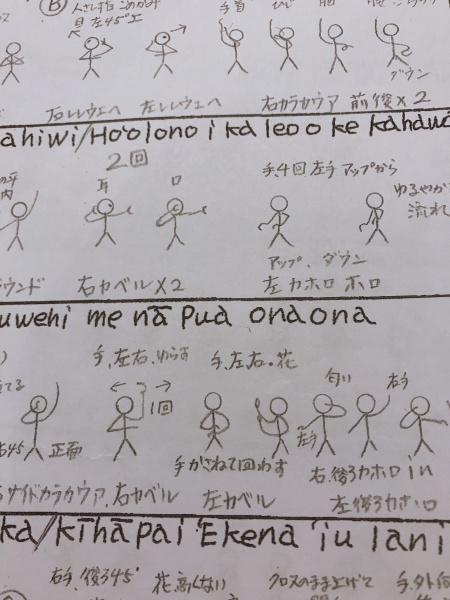 Ⓑ 人さし指 こめかみ
目 左45°上
手首 ひじ 胸
ダウン
右レレウエへ 左レレウエへ 右カラカウア 前後×2
ahiwi/Ho'olono i ka leo o ke kahawa
2回
内 耳 口 手4回 左手アップから
ゆるやか
流れ
アップ、ダウン
ラウンド 右カベル×2 左カホロ ホロ
uwehi me nā Pua onaona
手、左右、ゆらす 手、左右。花
匂い 右手
1回
左手
右45 正面 手かさねて回わす 右、後ろカホロin
サイドカラカウア、右カベル 左カベル 左後ろカホロ
ka/kīhāpai 'Ekena 'iu lani
右手、後ろ45° 花、高くない クロスのまま上げて 手、外向